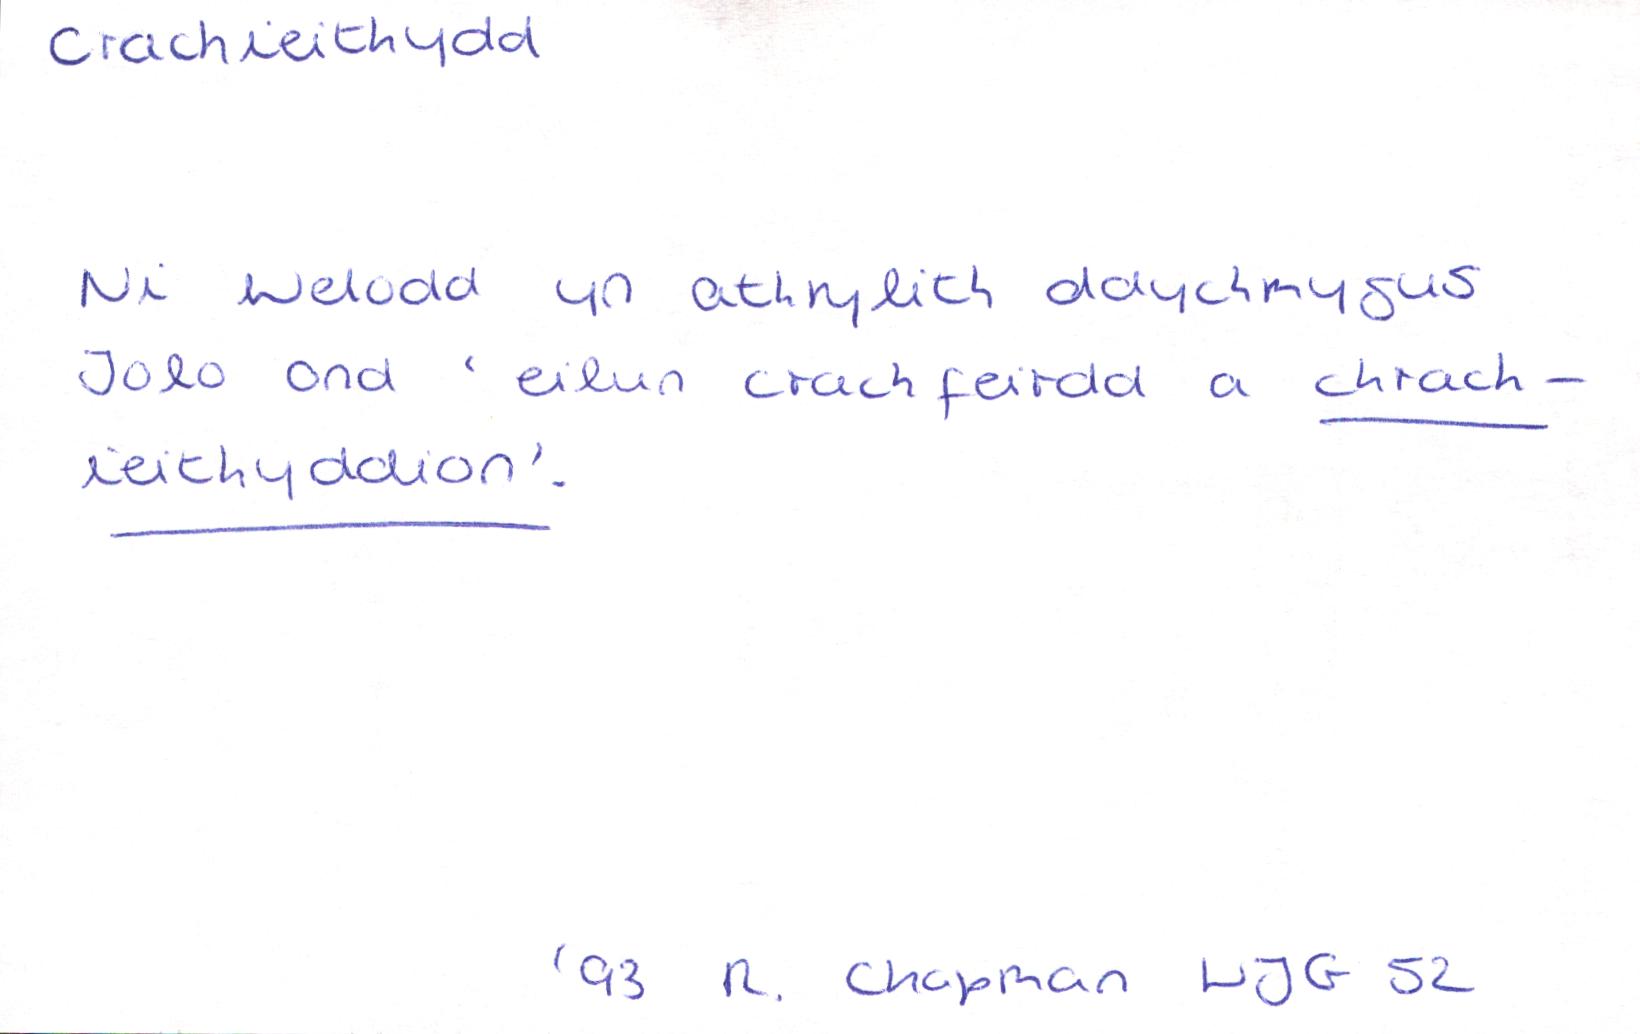 Crachieithydd
Ni welodd yn athrylith ddychmygus
Iolo ond 'eilun crachfeirdd a chrach-
ieithyddion'.
'93 R. Chapman WJG 52